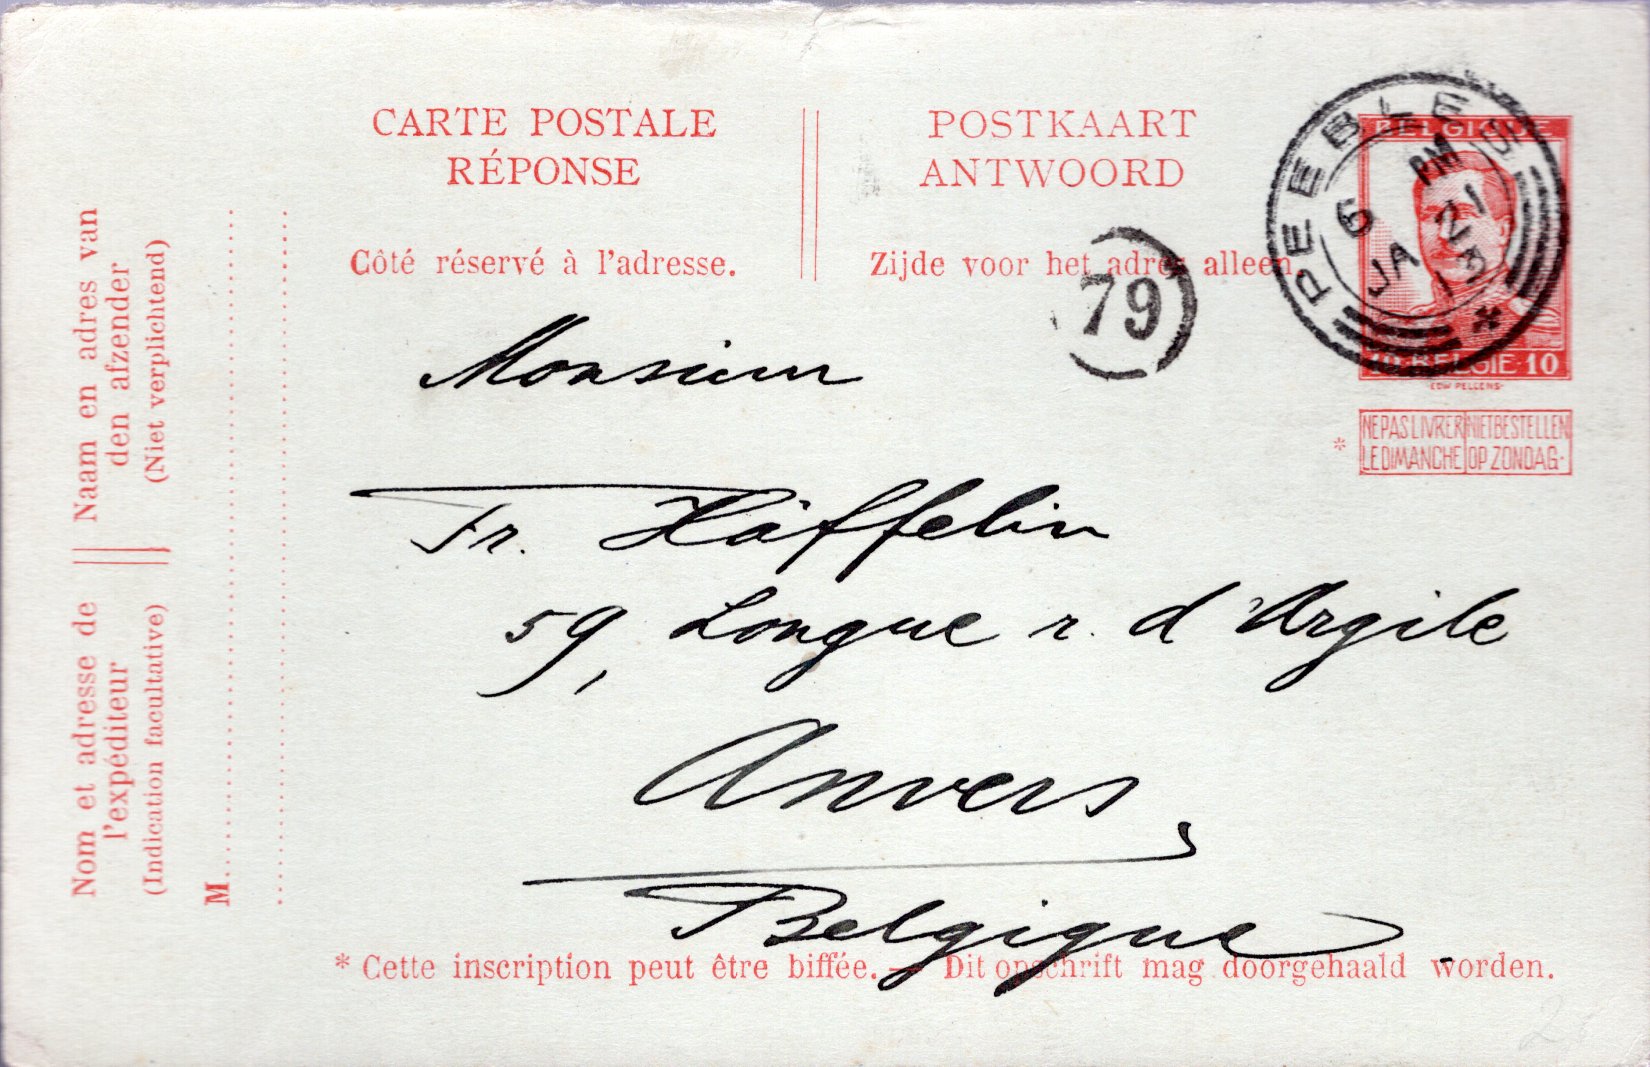 CARTE POSTALE
RÉPONSE
Côté réservé à l'adresse.
POSTKAART
ANTWOORD
Zijde voor het adres alleen.
79
PEEBLES
6 PM
JA 21
13
BELGIQUE
10 BELGIE 10
EDW PELLENS
* NE PAS LIVRER LE DIMANCHE
NIET BESTELLEN OP ZONDAG.
Naam en adres van
den afzender
(Niet verplichtend)
Nom et adresse de
l'expéditeur
(Indication facultative)
M
Monsieur
Fr. Häffelin
59, Longue r. d'Argile
Anvers
Belgique.
* Cette inscription peut être biffée. — Dit opschrift mag doorgehaald worden.